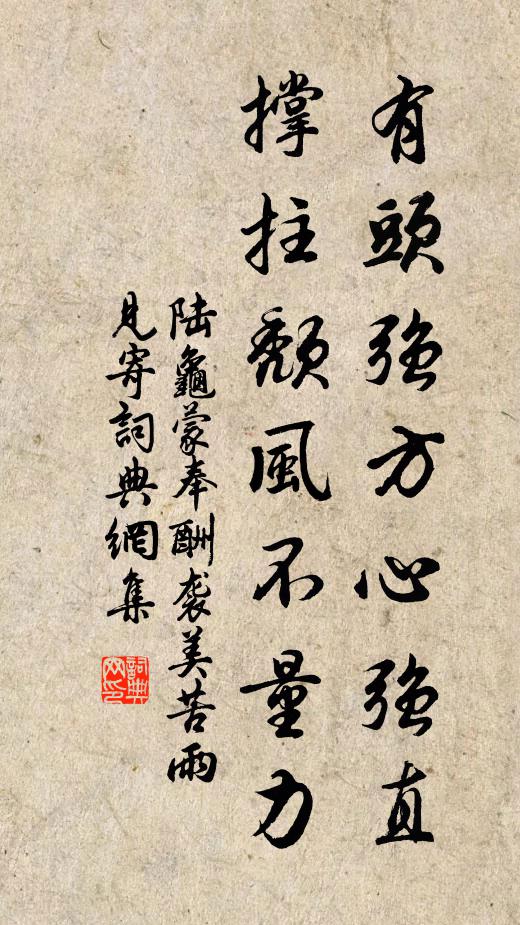 有頭強方心強直
撐拄頹風不量力
陸龜蒙奉酬襲美苦雨
見寄詞典網集
詞典网印